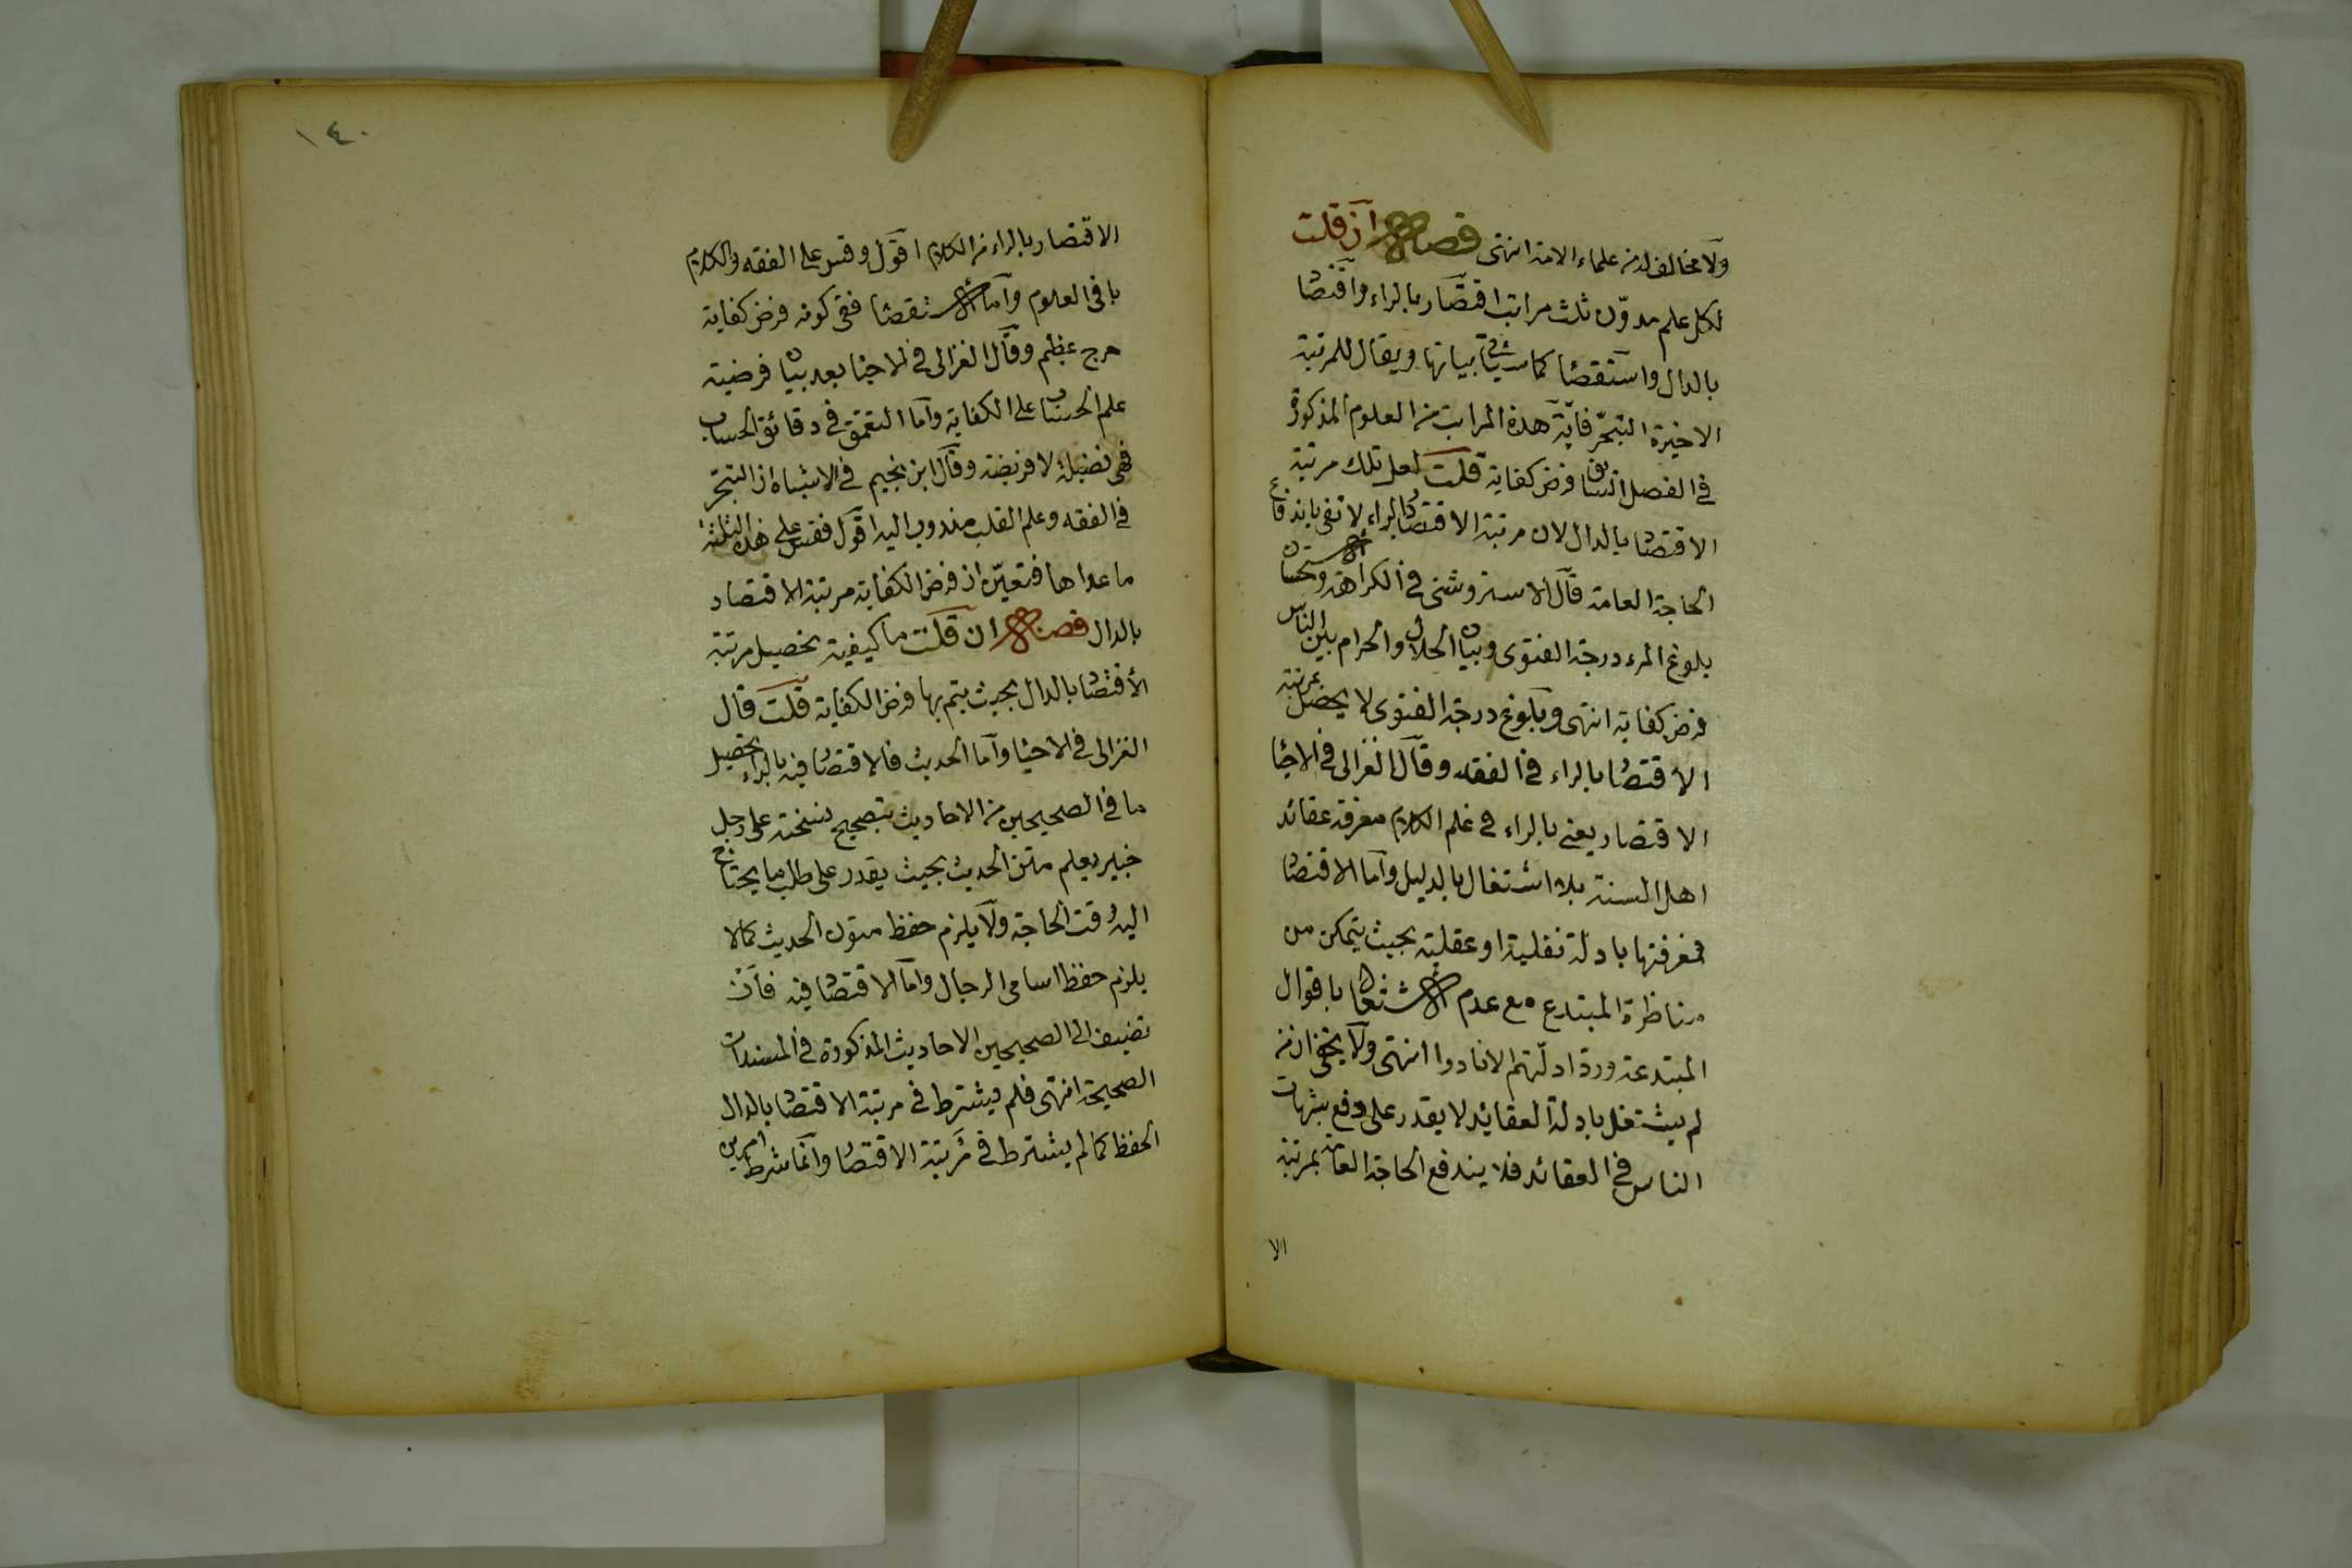 ولا مخالف له من علماء الامة انتهى فصل ان قلت
لكل علم مدوّن ثلث مراتب اقتصار بالراء واقتصاد
بالدال واستقصاء كما سيأتي بيانها ويقال للمرتبة
الاخيرة التبحّر فايّة هذه المراتب من العلوم المذكورة
في الفصل السابق فرض كفاية قلت لعل تلك مرتبة
الاقتصاد بالدال لان مرتبة الاقتصار بالراء لا تفى باندفاع
الحاجة العامة قال الاستروشنى في الكراهة والاستحسان
بلوغ المرء درجة الفتوى وبيان الحلال والحرام بين الناس
فرض كفاية انتهى وبلوغ درجة الفتوى لا يحصل بمرتبة
الاقتصار بالراء في الفقه وقال الغزالى في الاحياء
الاقتصار يعنى بالراء في علم الكلام معرفة عقائد
اهل السنة بلا اشتغال بالدليل واما الاقتصاد
فمعرفتها بادلة نقلية او عقلية بحيث يتمكن من
مناظرة المبتدع مع عدم الاشتغال باقوال
المبتدعة وردّ ادلّتهم الا نادرا انتهى ولا يخفى ان من
لم يشتغل بادلة العقائد لا يقدر على دفع شبهات
الناس في العقائد فلا يندفع الحاجة العامة بمرتبة
الا
١٤٠
الاقتصار بالراء من الكلام اقول وقس على الفقه والكلام
باقى العلوم واما الاستقصاء ففى كونه فرض كفاية
حرج عظيم وقال الغزالى في الاحياء بعد بيان فرضية
علم الحساب على الكفاية واما التعمق في دقائق الحساب
فهى فضيلة لا فريضة وقال ابن نجيم في الاشباه ان التبحّر
في الفقه وعلم القلب مندوب اليه اقول فقس على هذه الثلثة
ما عداها فتعيّن ان فرض الكفاية مرتبة الاقتصاد
بالدال فصل ان قلت ما كيفية تحصيل مرتبة
الاقتصاد بالدال بحيث يتم بها فرض الكفاية قلت قال
الغزالى في الاحياء واما الحديث فالاقتصار فيه بالراء تحصيل
ما في الصحيحين من الاحاديث بتصحيح نسخته على رجل
خبير بعلم متن الحديث بحيث يقدر على طلب ما يحتاج
اليه وقت الحاجة ولا يلزم حفظ متون الحديث كما لا
يلزم حفظ اسامى الرجال واما الاقتصاد فيه فان
تضيف الى الصحيحين الاحاديث المذكورة في المسندات
الصحيحة انتهى فلم يشترط في مرتبة الاقتصاد بالدال
الحفظ كما لم يشترط في مرتبة الاقتصار وانما شرط امرين